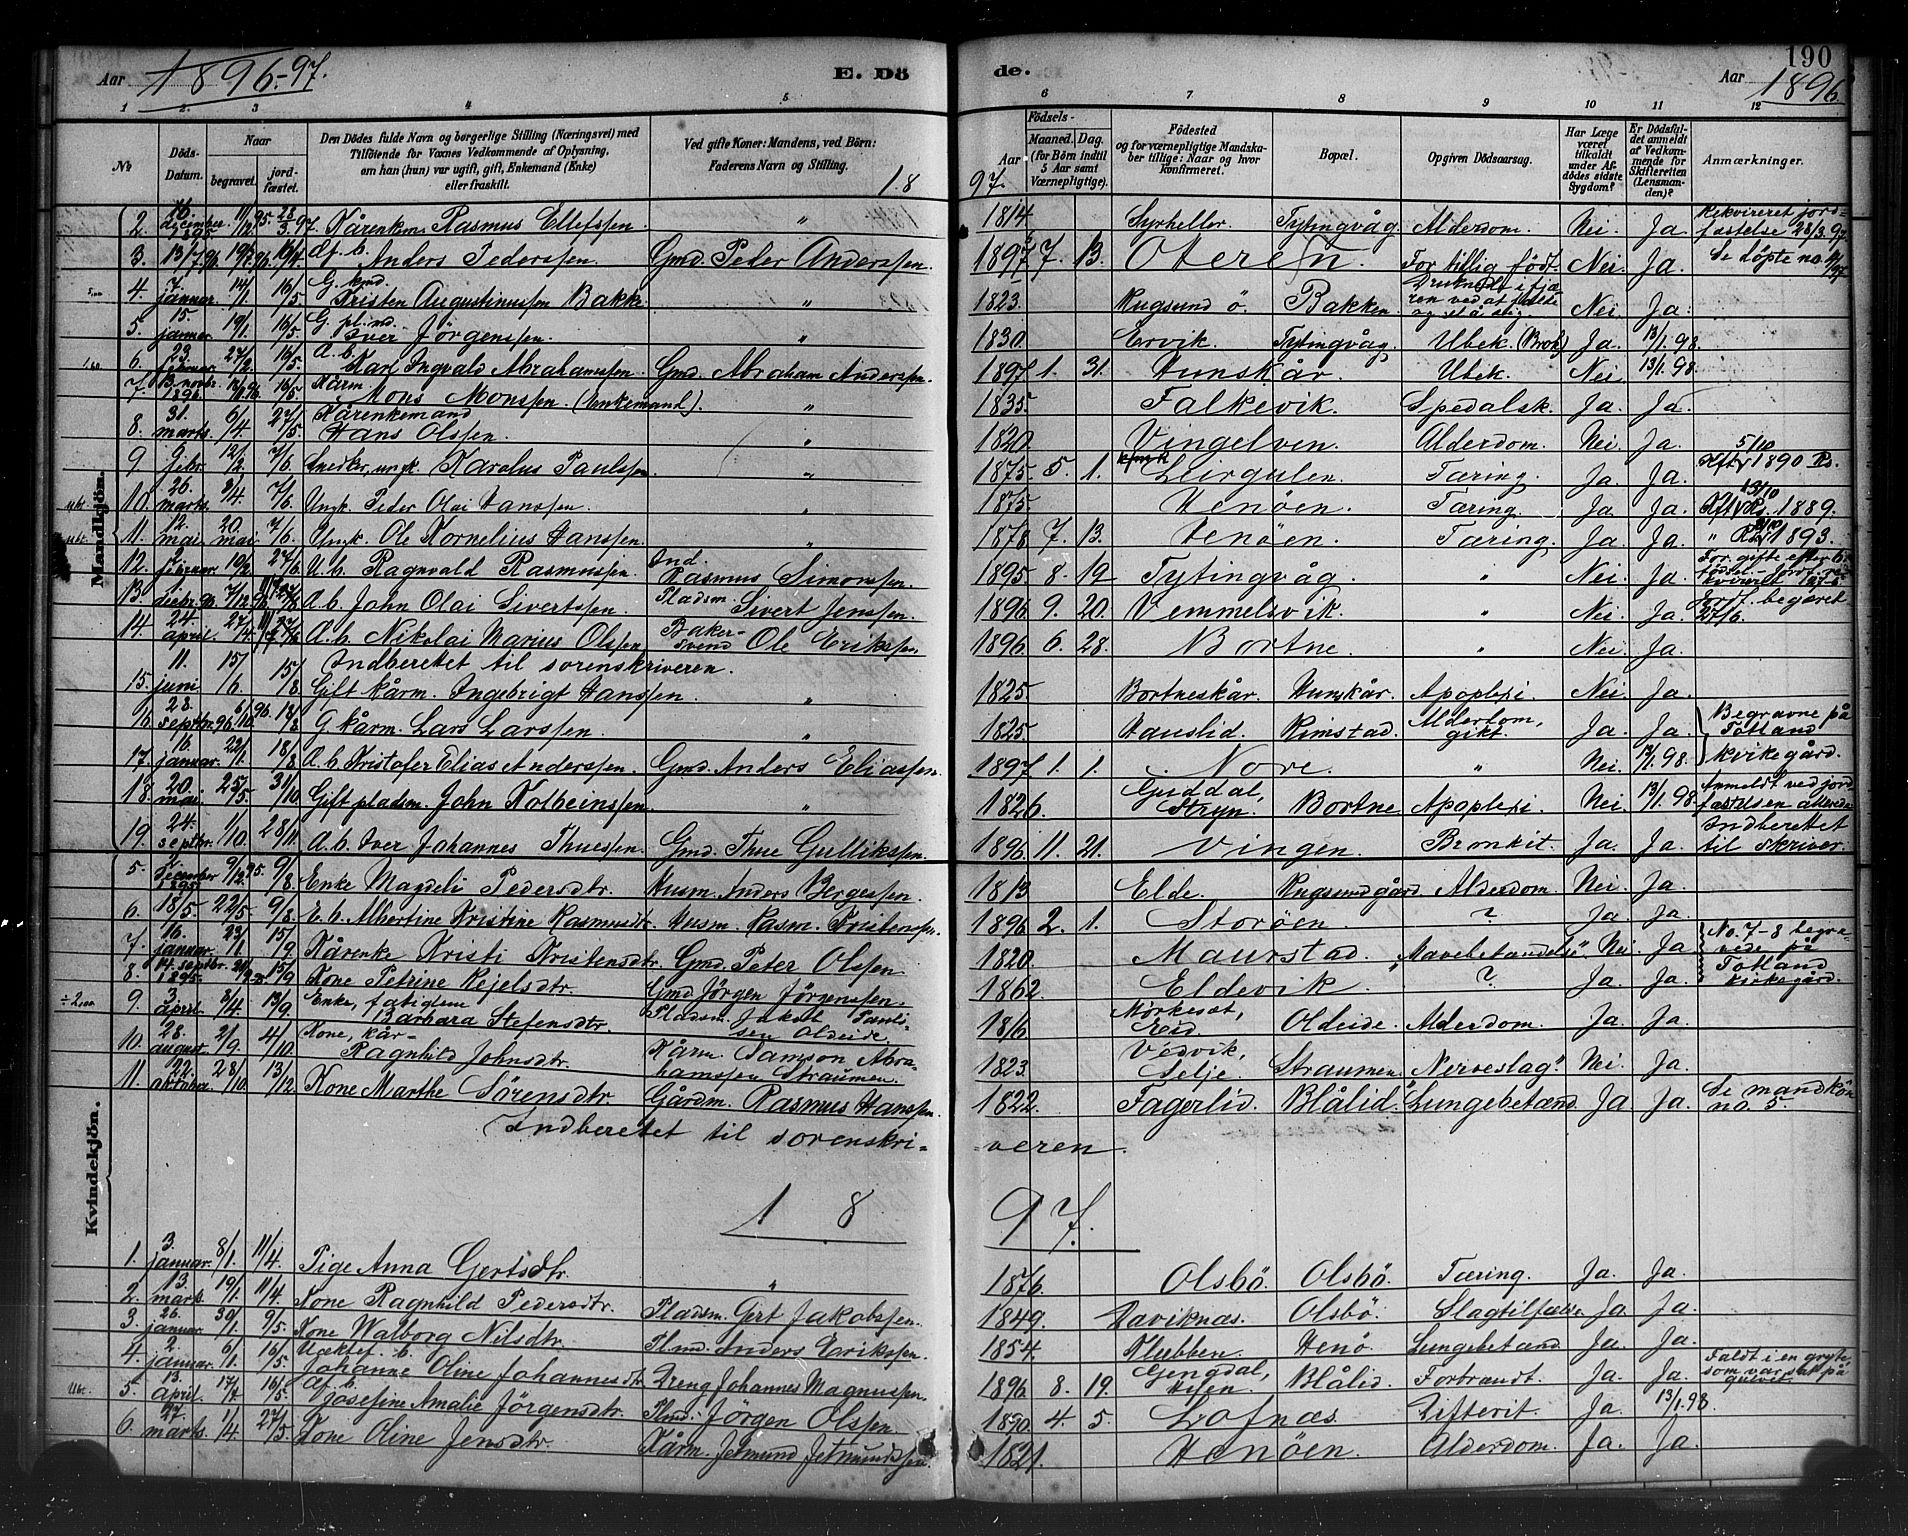 190
Aar 1896-97.
E. Dö
de.
Aar 1896
1 2. 3 4 5 6 7 8 9 10 11 12
No
Döds-Datum.
Naar
begravet.
jord-fæstet.
Den Dödes fulde Navn og borgerlige Stilling (Næringsvei) med
Tilföiende for Voxnes Vedkommende af Oplysning,
om han (hun) var ugift, gift, Enkemand (Enke)
eller fraskilt.
Ved gifte Koner: Mandens, ved Börn:
Faderens Navn og Stilling.
18
97.
Födsels-
Aar
Maaned. Dag.
(for Börn indtil
5 Aar samt
Værnepligtige).
Födested
og for værnepligtige Mandska-
ber tillige: Naar og hvor
konfirmeret.
Bopæl.
Opgiven Dödsaarsag.
Har Læge
været
tilkaldt
under Af-
dödes sidste
Sygdom?
Er Dödsfal-
det anmeldt
af Vedkom-
mende for
Skifteretten
(Lensman-
den)?
Anmærkninger.
Mandkjön.
2. 16. december 1895 11/12 95. 28/3 97. Kårenkem. Rasmus Ellefssen " 1814 Syrheller Tytingvåg Alderdom. Nei. Ja. Rekvireret jord-fæstelse 28/3 97
3. 13/7 96 19/7 96 19/4 Af. b. Anders Pederssen. Gmd. Peder Anderssen. 1897 7. 13. Oteren For tillig født. Nei Ja. Se døpte no.
4. 7. januar. 14/1. 16/5 G. kmd. Kristen Augustinussen Bakke " 1823. Rugsund ö. Bakken Nei Ja.
5. 15. januar. 19/1. 16/5. G. pl. md. Iver Jörgenssen. " 1830. Ervik. Tytingvåg. Ubek. (Brok) Ja. 13/1. 98.
6. 23. februar. 27/2. 16/5. A. b. Karl Ingvald Abrahamssen. Gmd. Abraham Anderssen. 1897. 1. 31. Hunskår. Ubek. Nei. 13/1. 98.
7. 13. novbr. 1896. 16/5. Kårm. Mons Monssen. (Enkemand). " 1835. Falkevik. Spedalsk. Ja. Ja.
8. 31. marts. 6/4. 27/5. Kårenkemand Hans Olssen. " 1820. Vingelven. Alderdom. Nei. Ja.
9. 9. febr. 12/2. 7/6. Snedker, ungk. Karolus Paulssen. " 1875. 5. 1. Leirgulen. Tæring. Ja. Ja. 5/10 1890
10. 26. marts. 2/4. 7/6. Ungk. Peder Olai Hanssen. " 1875. Henöen. Tæring Ja Ja. 13/10 1889.
11. 12. mai. 20. mai. 7/6. Ungk. Ole Kornelius Hanssen. " 1878 7. 13. Henöen. Tæring. Ja. Ja. 1893.
12. 2. februar 10/2. 27/6. U. b. Ragnvald Rasmussen. Ind. Rasmus Simonssen. 1895. 8. 12 Tytingvåg " Nei. Ja.
13. decbr. 96. 7/12 96. 27/6 A. b. John Olai Sivertssen. Pladsm. Sivert Jenssen. 1896. 9. 20. Vemmelsvik. " Nei. Ja. begæret 27/6.
14. 24. april. 27/4. 27/6 A. b. Nikolai Marius Olssen. Baker-svend Ole Erikssen. 1896. 6. 28. Bortne. " Nei. Ja.
Indberetet til sorenskriveren.
15. 11. juni 15/6. 15/8. Gift kårm. Ingebrigt Hanssen. " 1825. Bortneskår. Hunskår. Apoplexi. Nei. Ja.
16. 28. septbr. 96. 6/10. 96. 18/8 G. kårm. Lars Larssen. " 1825. Hauslid. Rimstad. Alderdom, gikt. Ja. Ja. Begravne på Totland kirkegård.
17. 16. januar. 22/1. 18/8 A. b. Kristofer Elias Anderssen. Gmd. Anders Eliassen. 1897. 1. 1. Nore. " Nei. 13/1. 98.
18. 20. mai. 25/5. 31/10. Gift pladsm. John Kolbeinssen. " 1826. Guddal, Stryn. Bortne. Apoplexi. Nei. 13/1. 98. Anmeldt ved jordfæstelsen allerede
19. 24. septbr. 1/10. 28/11. A. b. Iver Johannes Thuessen. Gmd. Thue Gullikssen. 1896. 11. 21. Vingen. Bronkit. Ja. Ja. Indberettet til skriver.
Kvindekjön.
5. december 1895 9/12. 95. 9/8. Enke Magdeli Pedersdtr. Husm. Anders Bergessen. 1813 Elde. Rugsundgård. Alderdom. Nei. Ja.
6. 18/5. 22/5. 9/8. E. b. Albertine Kristine Rasmusdtr. Husm. Rasm. Kristenssen. 1896. 2. 1. Storöen. ? Ja. Ja.
7. 16. januar. 23/1. 15/9. Kårenke Kristi Kristensdtr. Gmd. Peter Olssen. 1820. Maurstad. Nei. Ja. No. 7-8 begravede på Totland kirkegård.
8. 14. septbr. 1895. 15/9 Kone Petrine Rejelsdtr. Gmd Jörgen Jörgenssen. 1862. Eldevik. ? Ja. Ja.
9. 3. april. 8/4. 13/9. Enke, fatiglem Barbara Stefensdtr. Pladsm. Jakob Oldeide. 1816. Oldeide. Alderdom. Ja. Ja.
10. 28. august. 2/9. 4/10. Kone, kår- Ragnhild Johnsdtr. Kårm. Samson Abrahamssen Straumen. 1823. Vedvik, Selje. Straumen. "Nerveslag". Nei. Ja.
11. 22. oktober 28/10. 13/12. Kone Marthe Sörensdtr. Gårdm. Rasmus Hanssen. 1822. Fagerlid. Blålid. "Lungebetænd. Ja Ja. Se mandkön no. 5.
Indberetet til sorenskri-
veren.
18
97.
1. 3. januar. 8/1. 11/4. Pige Anna Gertsdtr. " 1876. Olsbö. Olsbö. Tæring. Ja. Ja.
2. 13. mark. 19/1. 11/4. Kone Ragnhild Pedersdtr. Pladsm. Gert Jakobssen. 1849. Daviknæs. Olsbö. Slagtilfælde. Ja Ja.
3. 26. januar. 30/1. 9/5. Kone Walborg Nilsdtr. Plmd. Anders Erikssen. 1854. Klubben. Henö. Lungebetænd. Ja. Ja.
4. 2. januar. 6/1. 16/5. Uæktef. b. Johanne Oline Johannesdtr. Dreng Johannes Magnussen. 1896. 8. 19. Gjengdal, Blålid. Forbrændt. Ja. Ja. Faldt i en gryte som var sat på gulvet.
5. 13. april. 17/4. 16/5. Af b. Josefine Amalie Jörgensdtr. Plmd. Jörgen Olssen. 1890. 4. 5. Lofnæs. Difterit. Ja. 13/1. 98.
6. 27. marts. 1/4. 27/5. Kone Oline Jensdtr. Kårm. Jetmund Jetmundssen. 1821. Henöen. Alderdom. Ja. Ja.